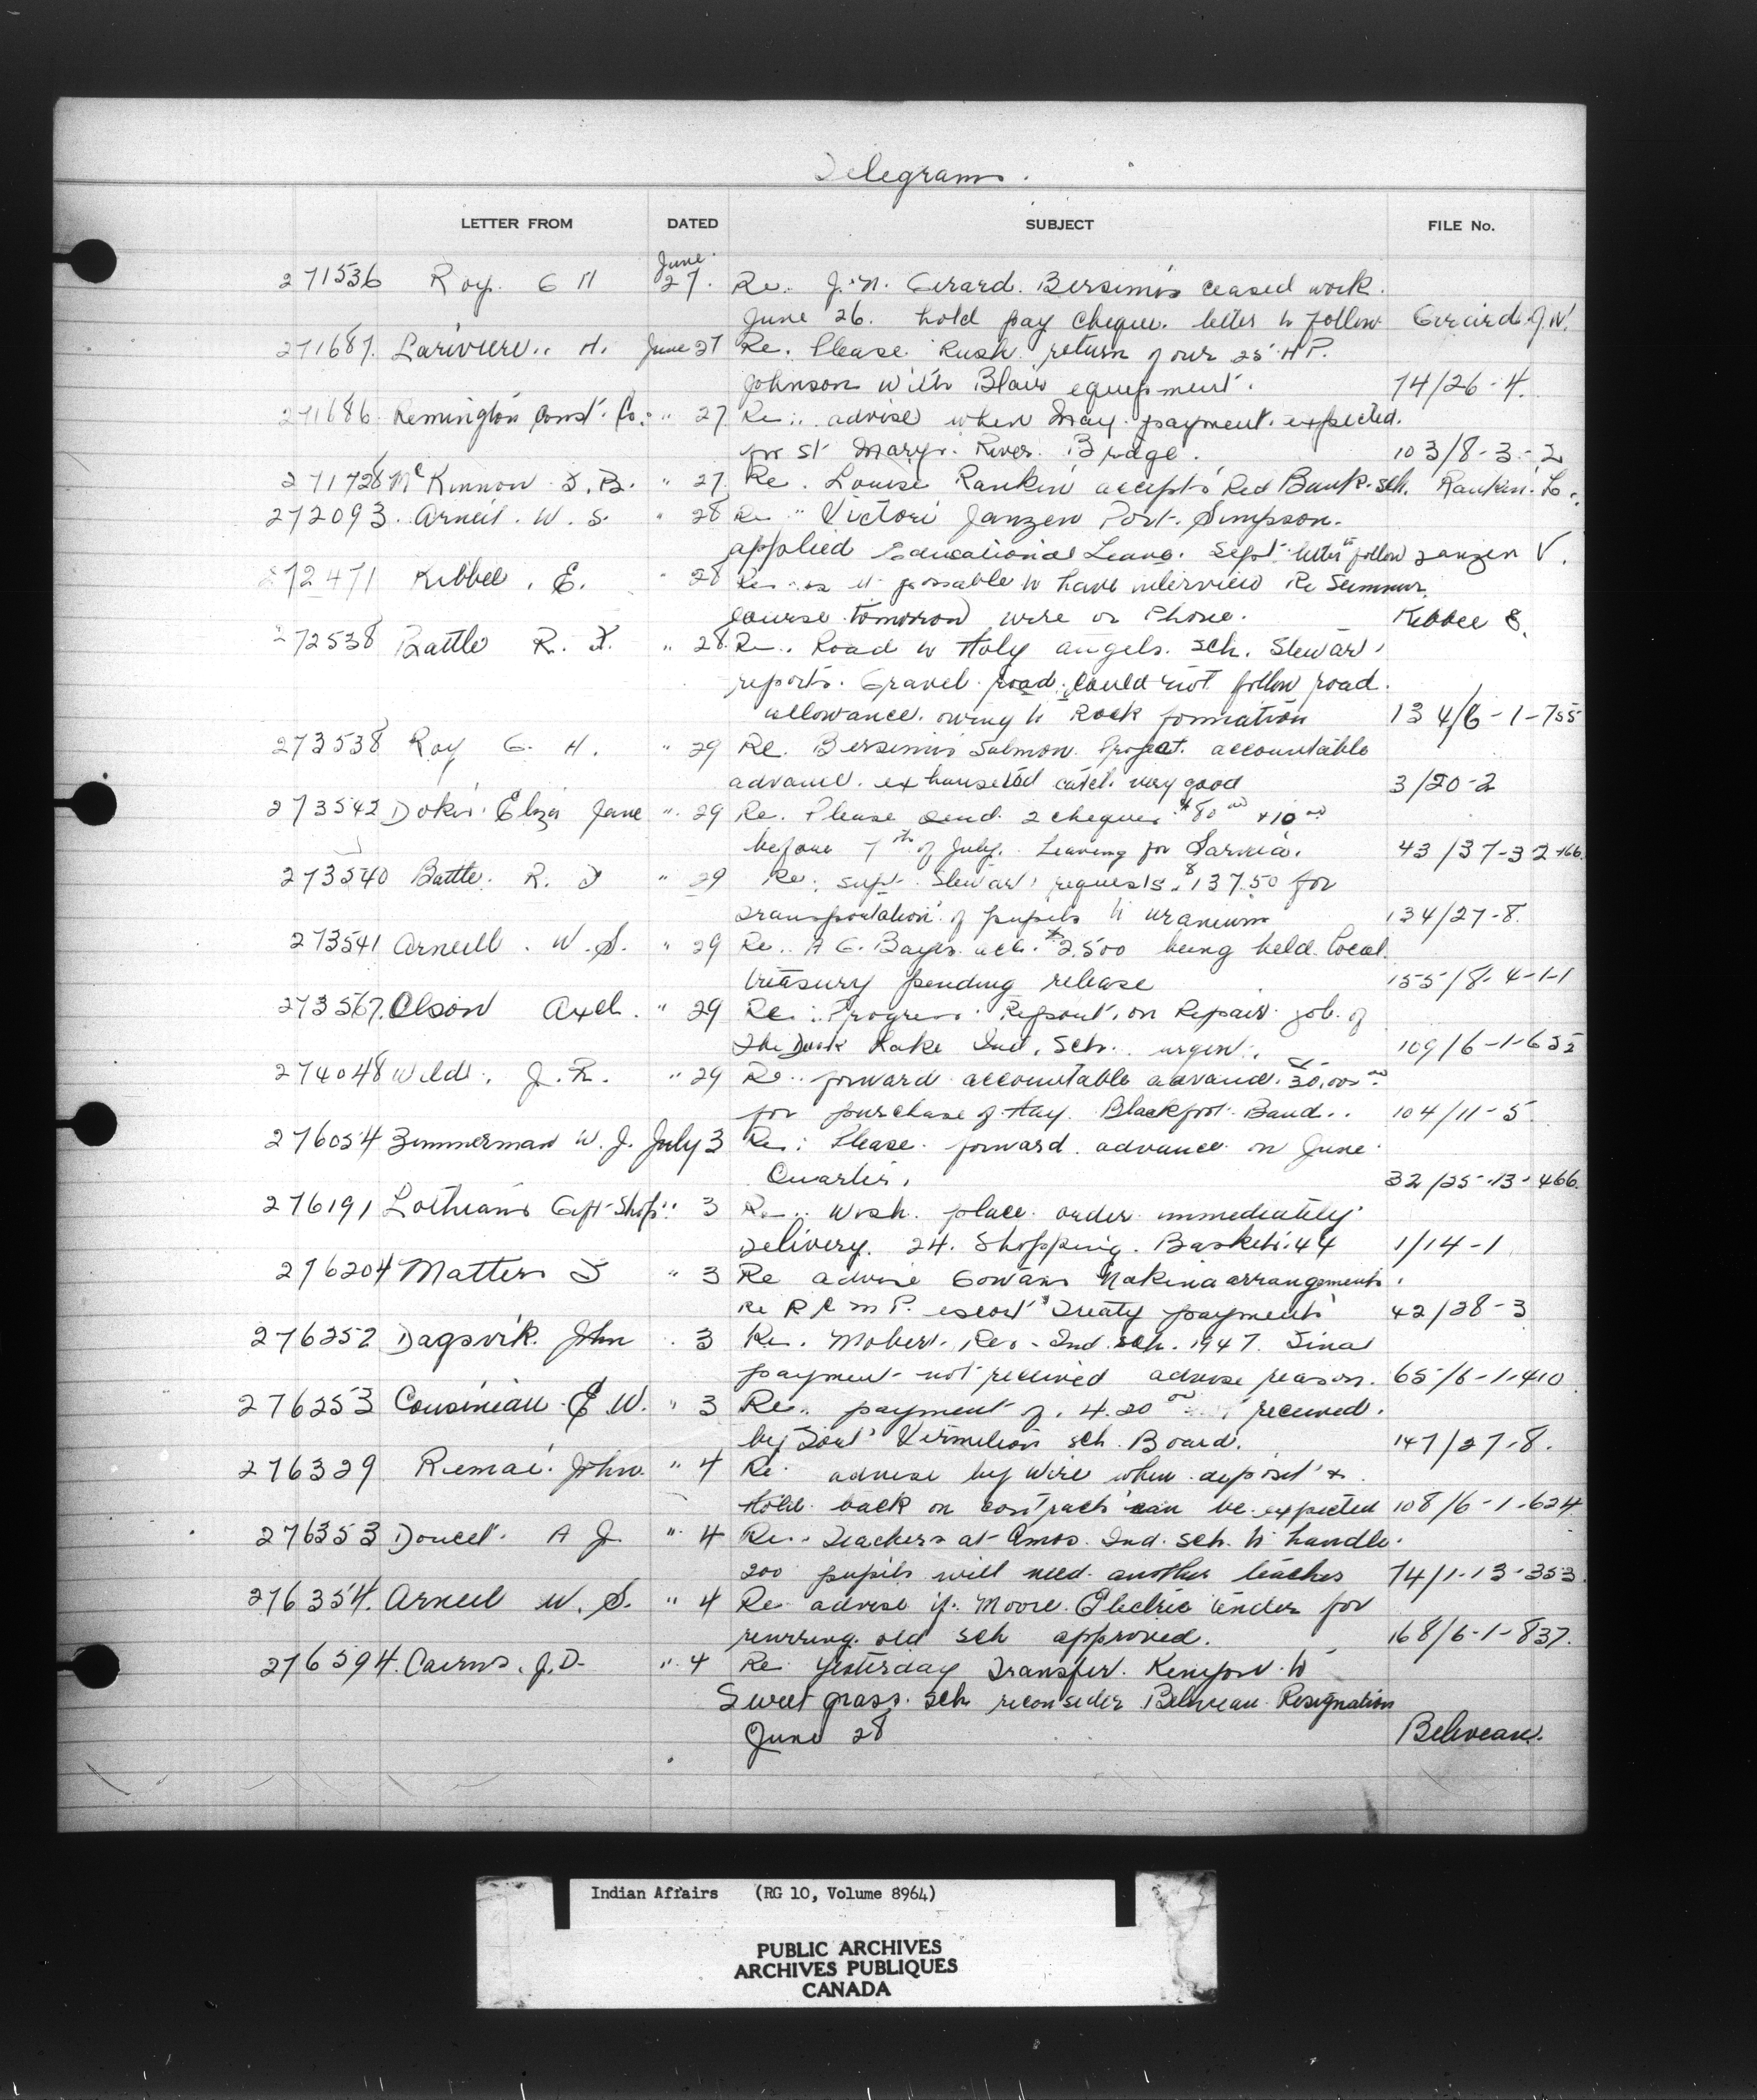 Telegrams.
LETTER FROM DATED SUBJECT FILE No.
June
271536 Roy G H 27. Re. J. N. Gerard. Bersimis ceased work.
June 26. hold pay cheque. letter to follow Gerard J. N.
271687. Lariviere.. H. June 27 Re. Please Rush return of our 25 H P.
Johnson with Blair equipment. 74/26-4.
271686 Remington Const. Co. " 27 Re.. advise when May payment expected.
for St Marys River Bridge. 103/8-3-2
271728 McKinnon F. B. " 27 Re. Louise Rankin accepts Red Bank sch. Rankin. L.
272093. Arneil. W. S. " 28 Re " Victori Janzen Port. Simpson.
applied Educational Leave. Sept letter to follow Janzen V.
272471 Kibbee, E. " 28 Re is it possable to have interview Re Summer
course tomorrow wire or Phone. Kibbee E.
272538 Battle R. F. " 28. Re.. Road to Holy Angels. Sch. Stewart
reports. Gravel road could not follow road.
allowance. owing to Rock formation 134/6-1-755
273538 Roy G. H. " 29 Re. Bersimis Salmon Project. accountable
advance. exhausted catch very good 3/20-2
273542 Dokis. Eliza Jane " 29 Re. Please send 2 cheques $80 00 + 10 00
before 7th of July. Leaving for Sarnia. 43/37-32-166.
273540 Battle. R. F " 29 Re. supt. Stewart requests. $137.50 for
transportation of pupils to uranium 134/27-8.
273541 Arneill. W. S. " 29 Re.. A G. Bayes acct. $2,500 being held local
treasury pending release 155/8-4-1-1
273567. Olson Axel. " 29 Re: Progress Report, on Repair job of
The Duck Lake Ind. Sch. urgent. 109/6-1-652
274048 Wild. J. R. " 29 Re.. forward accountable advance. 30,000 00
for purchase of Hay. Blackfoot Band.. 104/11-5.
276054 Zimmerman W. J. July 3 Re: Please forward advance on June
Quarter. 32/25-13-466.
276191 Lothians Gift Shop " 3 Re.. Wish place order immediately
Delivery. 24. Shopping. Baskets. 44 1/14-1
276204 Matters F " 3 Re advise Gowans Nakina arrangements
Re R C M P. escort Treaty payments 42/28-3
276252 Dagsvik. John . 3 Re. Mobert. Res. Ind. sch. 1947. Final
payment not received advise reason. 65/6-1-410
276253 Cousineau E W. " 3 Re.. payment of. 4.20 00 received.
by Fort Vermilion sch. Board. 147/27-8.
276329 Remai. John. " 4 Re advise by wire when deposit &
hold back on contracts can be expected 108/6-1-624
276353 Doucet. A J. " 4 Re. Teachers at Amos Ind. sch. to handle.
200 pupils will need another teacher 74/1-13-353.
276354. Arneil W. S. " 4 Re advise if. Moore Electric tender for
rewiring old sch approved. 168/6-1-837.
276594. Cairns. J. D. " 4 Re Yesterday Transfer. Kenyon to
Sweet grass. sch reconsider Beliveau Resignation
June 28 Beliveau.
Indian Affairs (RG 10, Volume 8964)
PUBLIC ARCHIVES
ARCHIVES PUBLIQUES
CANADA